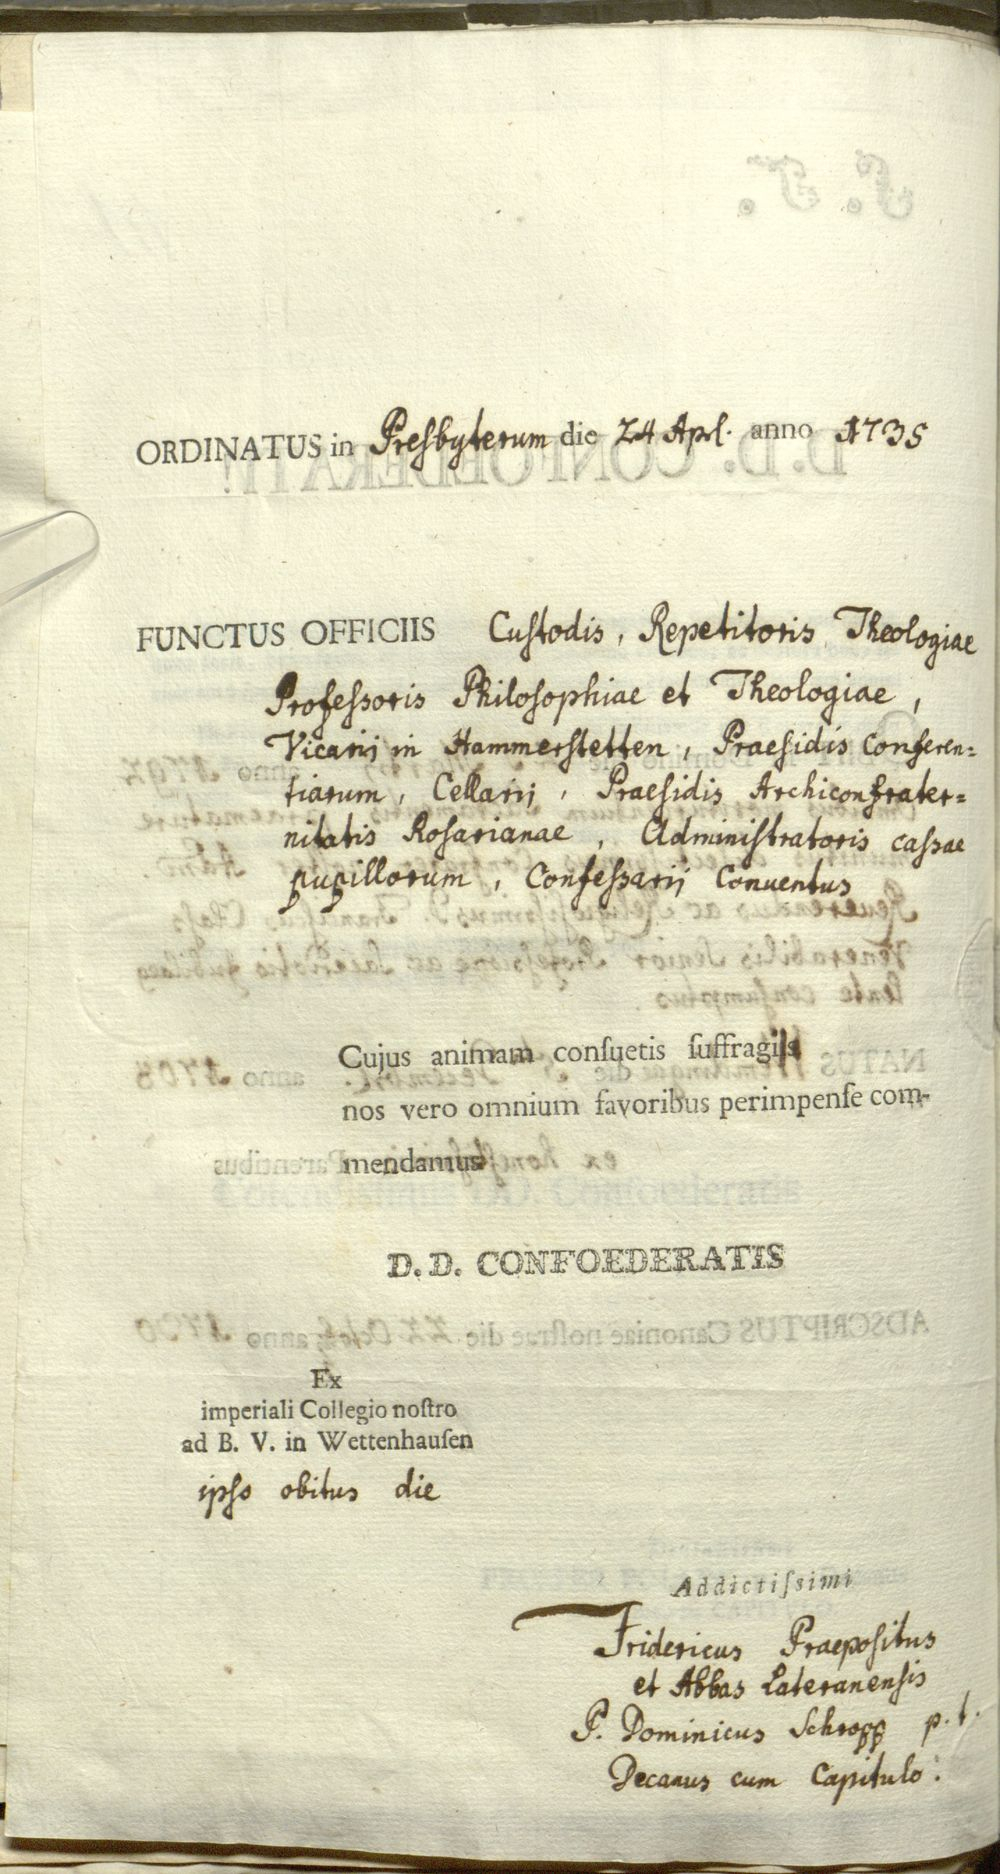 ORDINATUS in Presbyterum die 24 Apl. anno 1735
FUNCTUS OFFICIIS Custodis, Repetitoris Theologiae
Professoris Philosophiae et Theologiae,
Vicarij in Hammerstetten, Praesidis Conferen=
tiarum, Cellarij, Praesidis Archiconfrater=
nitatis Rosarianae, Administratoris cassae
pupillorum, Confessarij Conventus
Cujus animam conſuetis ſuffragiis
nos vero omnium favoribus perimpenſe com-
mendamus
D. D. CONFOEDERATIS
Ex
imperiali Collegio noſtro
ad B. V. in Wettenhauſen
ipso obitus die
Addictiſsimi
Fridericus Praepositus
et Abbas Lateranensis
P. Dominicus Schropp p. t.
Decanus cum Capitulo.